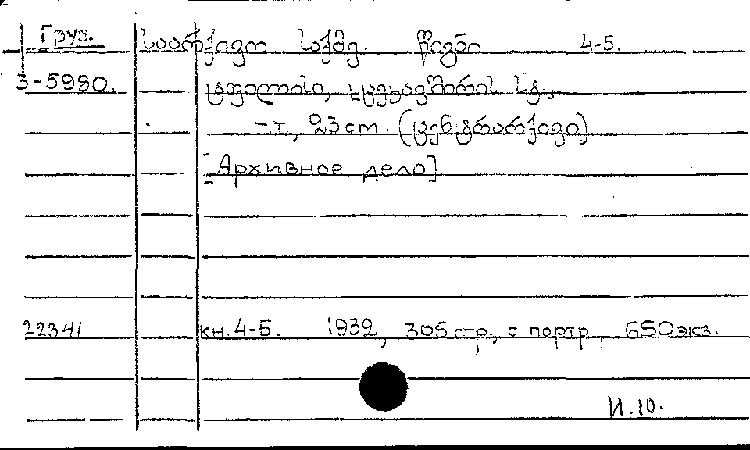 Груз. საარქივო საქმე. წიგნი 4-5.
3-5980. ტფილისი, სტ.,
–I, 23 cm. (ცენტრარქივი)
[Архивное дело]
22341 кн. 4-5. 1932, 305 стр., с портр., 650 экз.
И.10.